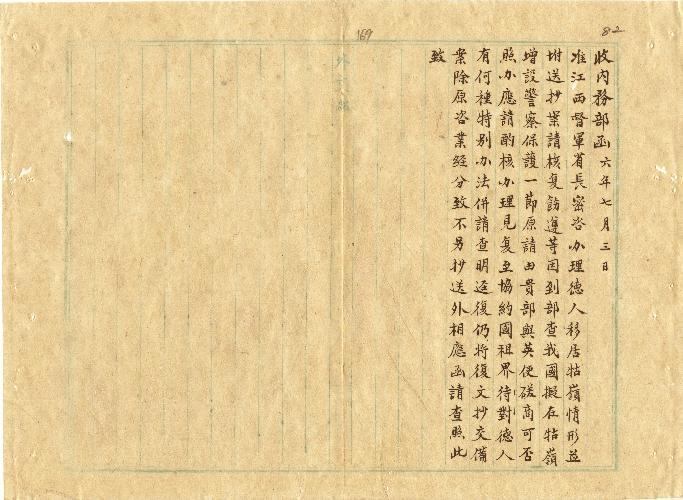 82
169
收內務部函六年七月三日
准江西督軍省長密咨办理德人移居牯嶺情形並
坿送抄案請核复飭遵等因到部查我國擬在牯嶺
增設警察保護一節原請由貴部與英使磋商可否
照办應請酌核办理見复至協約國租界待對德人
有何種特别办法併請查明逕復仍将復文抄交備
案除原咨業經分致不另抄送外相應函請查照此
致
外交部